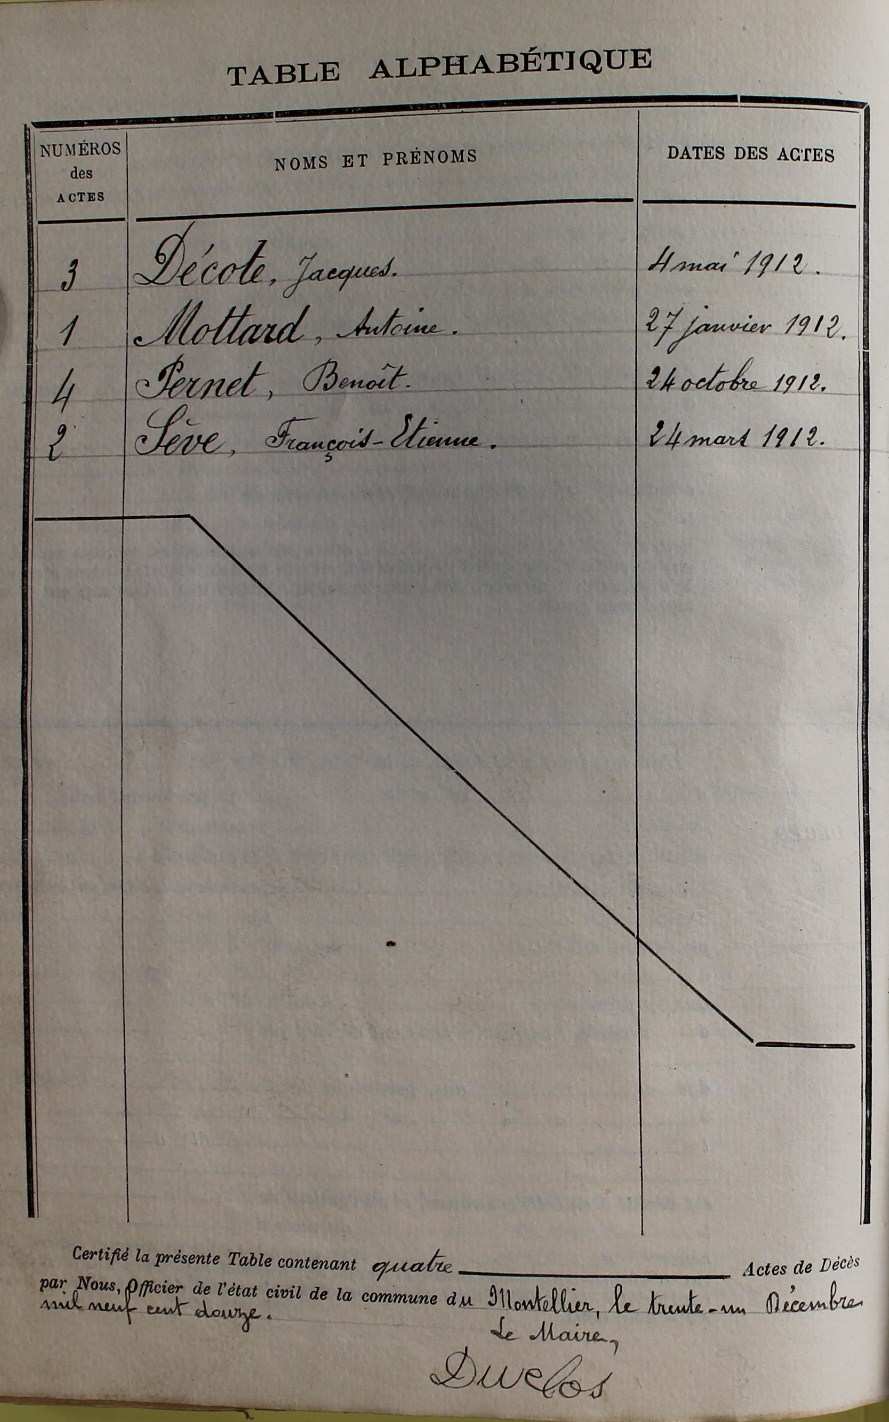 TABLE ALPHABÉTIQUE
NUMÉROS des ACTES NOMS ET PRÉNOMS DATES DES ACTES
3 Décote, Jacques. 4 mai 1912.
1 Mottard, Antoine. 27 janvier 1912.
4 Pernet, Benoît. 24 octobre 1912.
2 Sève, François-Etienne. 24 mars 1912.
Certifié la présente Table contenant quatre Actes de Décès
par Nous, Officier de l'état civil de la commune du Montellier, le trente-un Décembre
mil neuf cent douze.
Le Maire,
Duclos